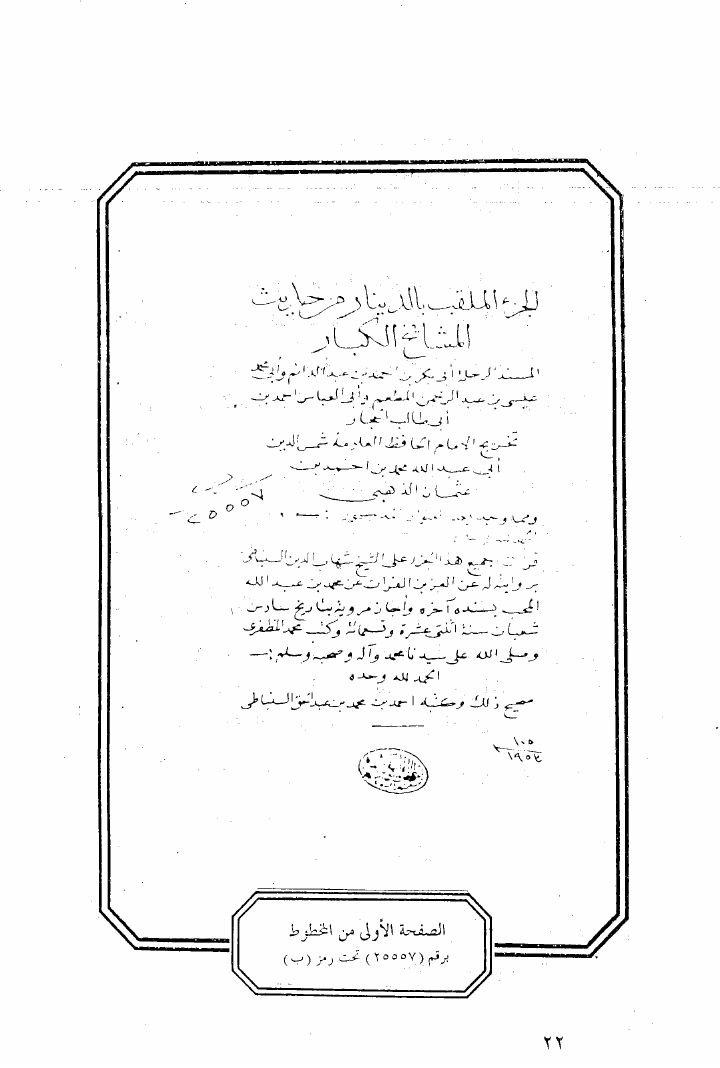 الجزء الملقب بالدينار من حديث
المشائخ الكبار
المسند الرحلة أبي بكر بن احمد بن عبد الدائم وأبي محمد
عيسى بن عبد الرحمن المطعم وأبي العباس احمد بن
أبي طالب الحجار
تخريج الامام الحافظ العلامة شمس الدين
أبي عبد الله محمد بن احمد بن
عثمان الذهبي
٢٥٥٥٧
ومما وجد بعد
الحمد لله
قرأت جميع هذا الجزء على الشيخ شهاب الدين السنباطي
بروايته له عن العز بن الفرات عن محمد بن عبد الله
المحب بسنده آخره وأجاز مرويه بتاريخ سادس
شعبان سنة اثنتي عشرة وتسعمائة وكتب محمد المظفري
وصلى الله على سيدنا محمد وآله وصحبه وسلم
الحمد لله وحده
صحيح ذلك وكتبه احمد بن محمد بن عبد الحق السنباطي
الصفحة الأولى من المخطوط
برقم (٢٥٥٥٧) تحت رمز (ب)
٢٢